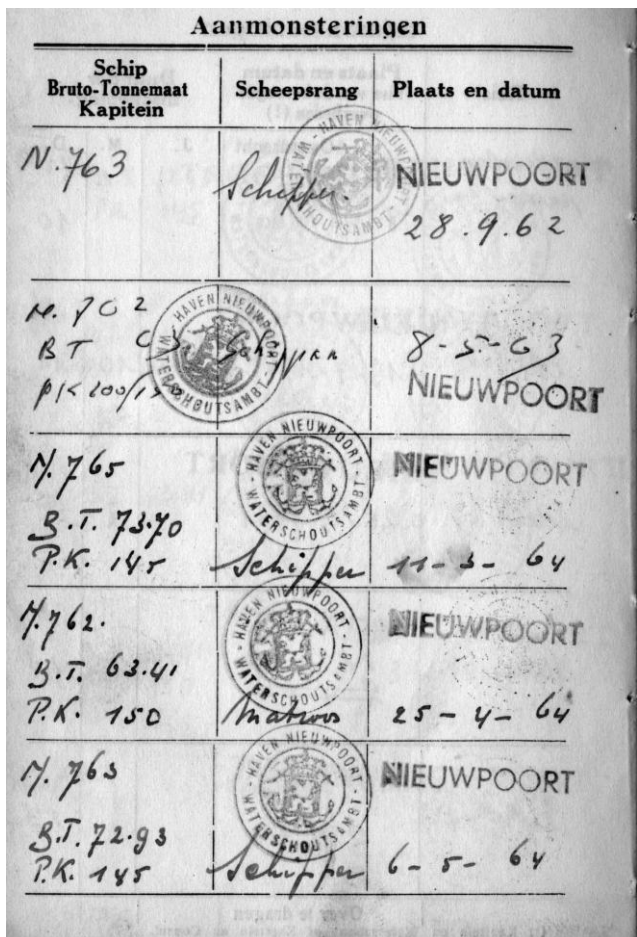 Aanmonsteringen
Schip
Bruto-Tonnemaat
Kapitein
Scheepsrang
Plaats en datum
N 763
Schipper.
HAVEN NIEUWPOORT - WATERSCHOUTSAMBT -
NIEUWPOORT
28.9.62
N. 702
BT
PK 200/150
Schipper
HAVEN NIEUWPOORT - WATERSCHOUTSAMBT -
8-5-63
NIEUWPOORT
N. 765
B.T. 73.70
P.K. 145
Schipper
HAVEN NIEUWPOORT - WATERSCHOUTSAMBT -
NIEUWPOORT
11-3-64
N. 762.
B.T. 63.41
P.K. 150
Matroos
HAVEN NIEUWPOORT - WATERSCHOUTSAMBT -
NIEUWPOORT
25-4-64
N. 763
B.T. 72.93
P.K. 145
Schipper
HAVEN NIEUWPOORT - WATERSCHOUTSAMBT -
NIEUWPOORT
6-5-64
Over te dragen